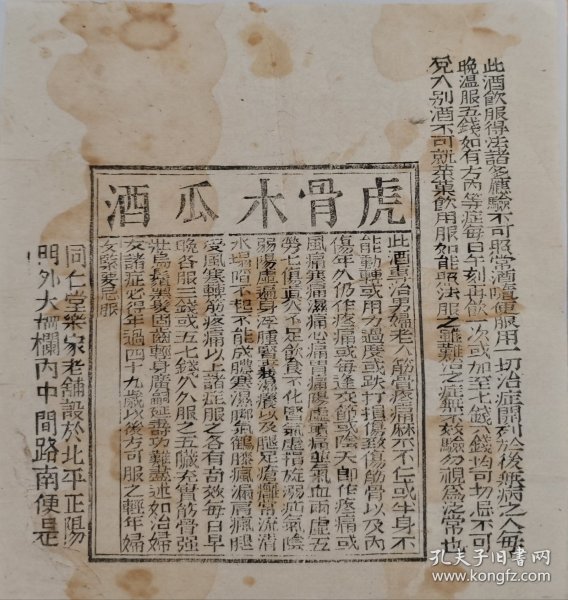 此酒飲服得法諸多應驗不可照常酒隨便服用一切治症開列於後無病之人每
晚溫服五錢如有方內等症每日午刻再飲一次或加至七錢八錢均可切忌不可
兌入別酒不可就葷菓飲用服如能照法服之雖難治之症無不效驗勿視為泛常也
虎骨木瓜酒
此酒專治男婦老人筋骨疼痛麻木不仁或半身不
能動轉或用力過度或跌打損傷致傷筋骨以及內
傷年久仍作疼痛或每逢交節或陰天即作疼痛或
風痛寒痛濕痛心痛胃痛腰虛
痛並氣血兩虛五
勞七傷真火不足飲食不化腎氣虛損旋溺疝氣陰
弱陽虛遍身浮腫
濕癢以及腿足瘡癰常流清
水塌陷不起不能成膿寒濕脚氣鶴膝瘋漏肩瘋腿
受風寒轉筋疼痛以上諸症服之各有奇效每日早
晚各服三錢或五七錢久久服之五臟充實筋骨強
壯烏鬚黑髮固齒輕身廣嗣延壽功難盡述如治婦
女諸症必得年過四十九歲以後方可服之輕年婦
女緊要忌服
同仁堂樂家老舖設於北平正陽
門外大柵欄內中間路南便是
孔夫子旧书网
www.kongfz.com